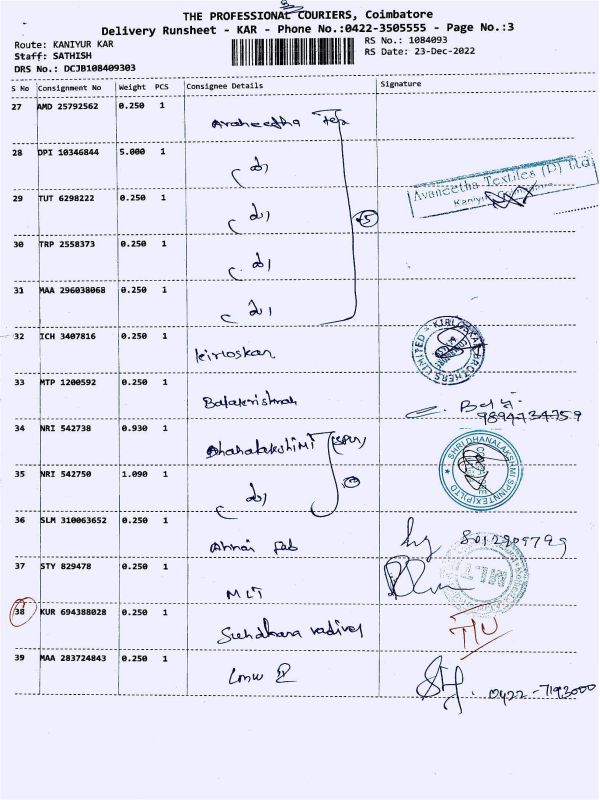 THE PROFESSIONAL COURIERS, Coimbatore
Delivery Runsheet - KAR - Phone No.:0422-3505555 - Page No.:3
Route: KANIYUR KAR
RS No.: 1084093
Staff: SATHISH
RS Date: 23-Dec-2022
DRS No.: DCJB108409303
S No Consignment No Weight PCS Consignee Details Signature
27 AMD 25792562 0.250 1
28 DPI 10346844 5.000 1
Avaneetha Textiles (P) Ltd
29 TUT 6298222 0.250 1
30 TRP 2558373 0.250 1
31 MAA 296038068 0.250 1
32 ICH 3407816 0.250 1
kirloskar
KIRLOSKAR BROTHERS LIMITED
33 MTP 1200592 0.250 1
Balakrishnah
9894734759
34 NRI 542738 0.930 1
Dhanalakshimi
SHRI DHANALAKSHMI SPINNTEX (P) LTD
35 NRI 542750 1.090 1
36 SLM 310063652 0.250 1
Annai Fab
8012909799
37 STY 829478 0.250 1
MLT
MLT
38 KUR 694388028 0.250 1
vadivel
T/U
39 MAA 283724843 0.250 1
Lmw 2
0422-7193000